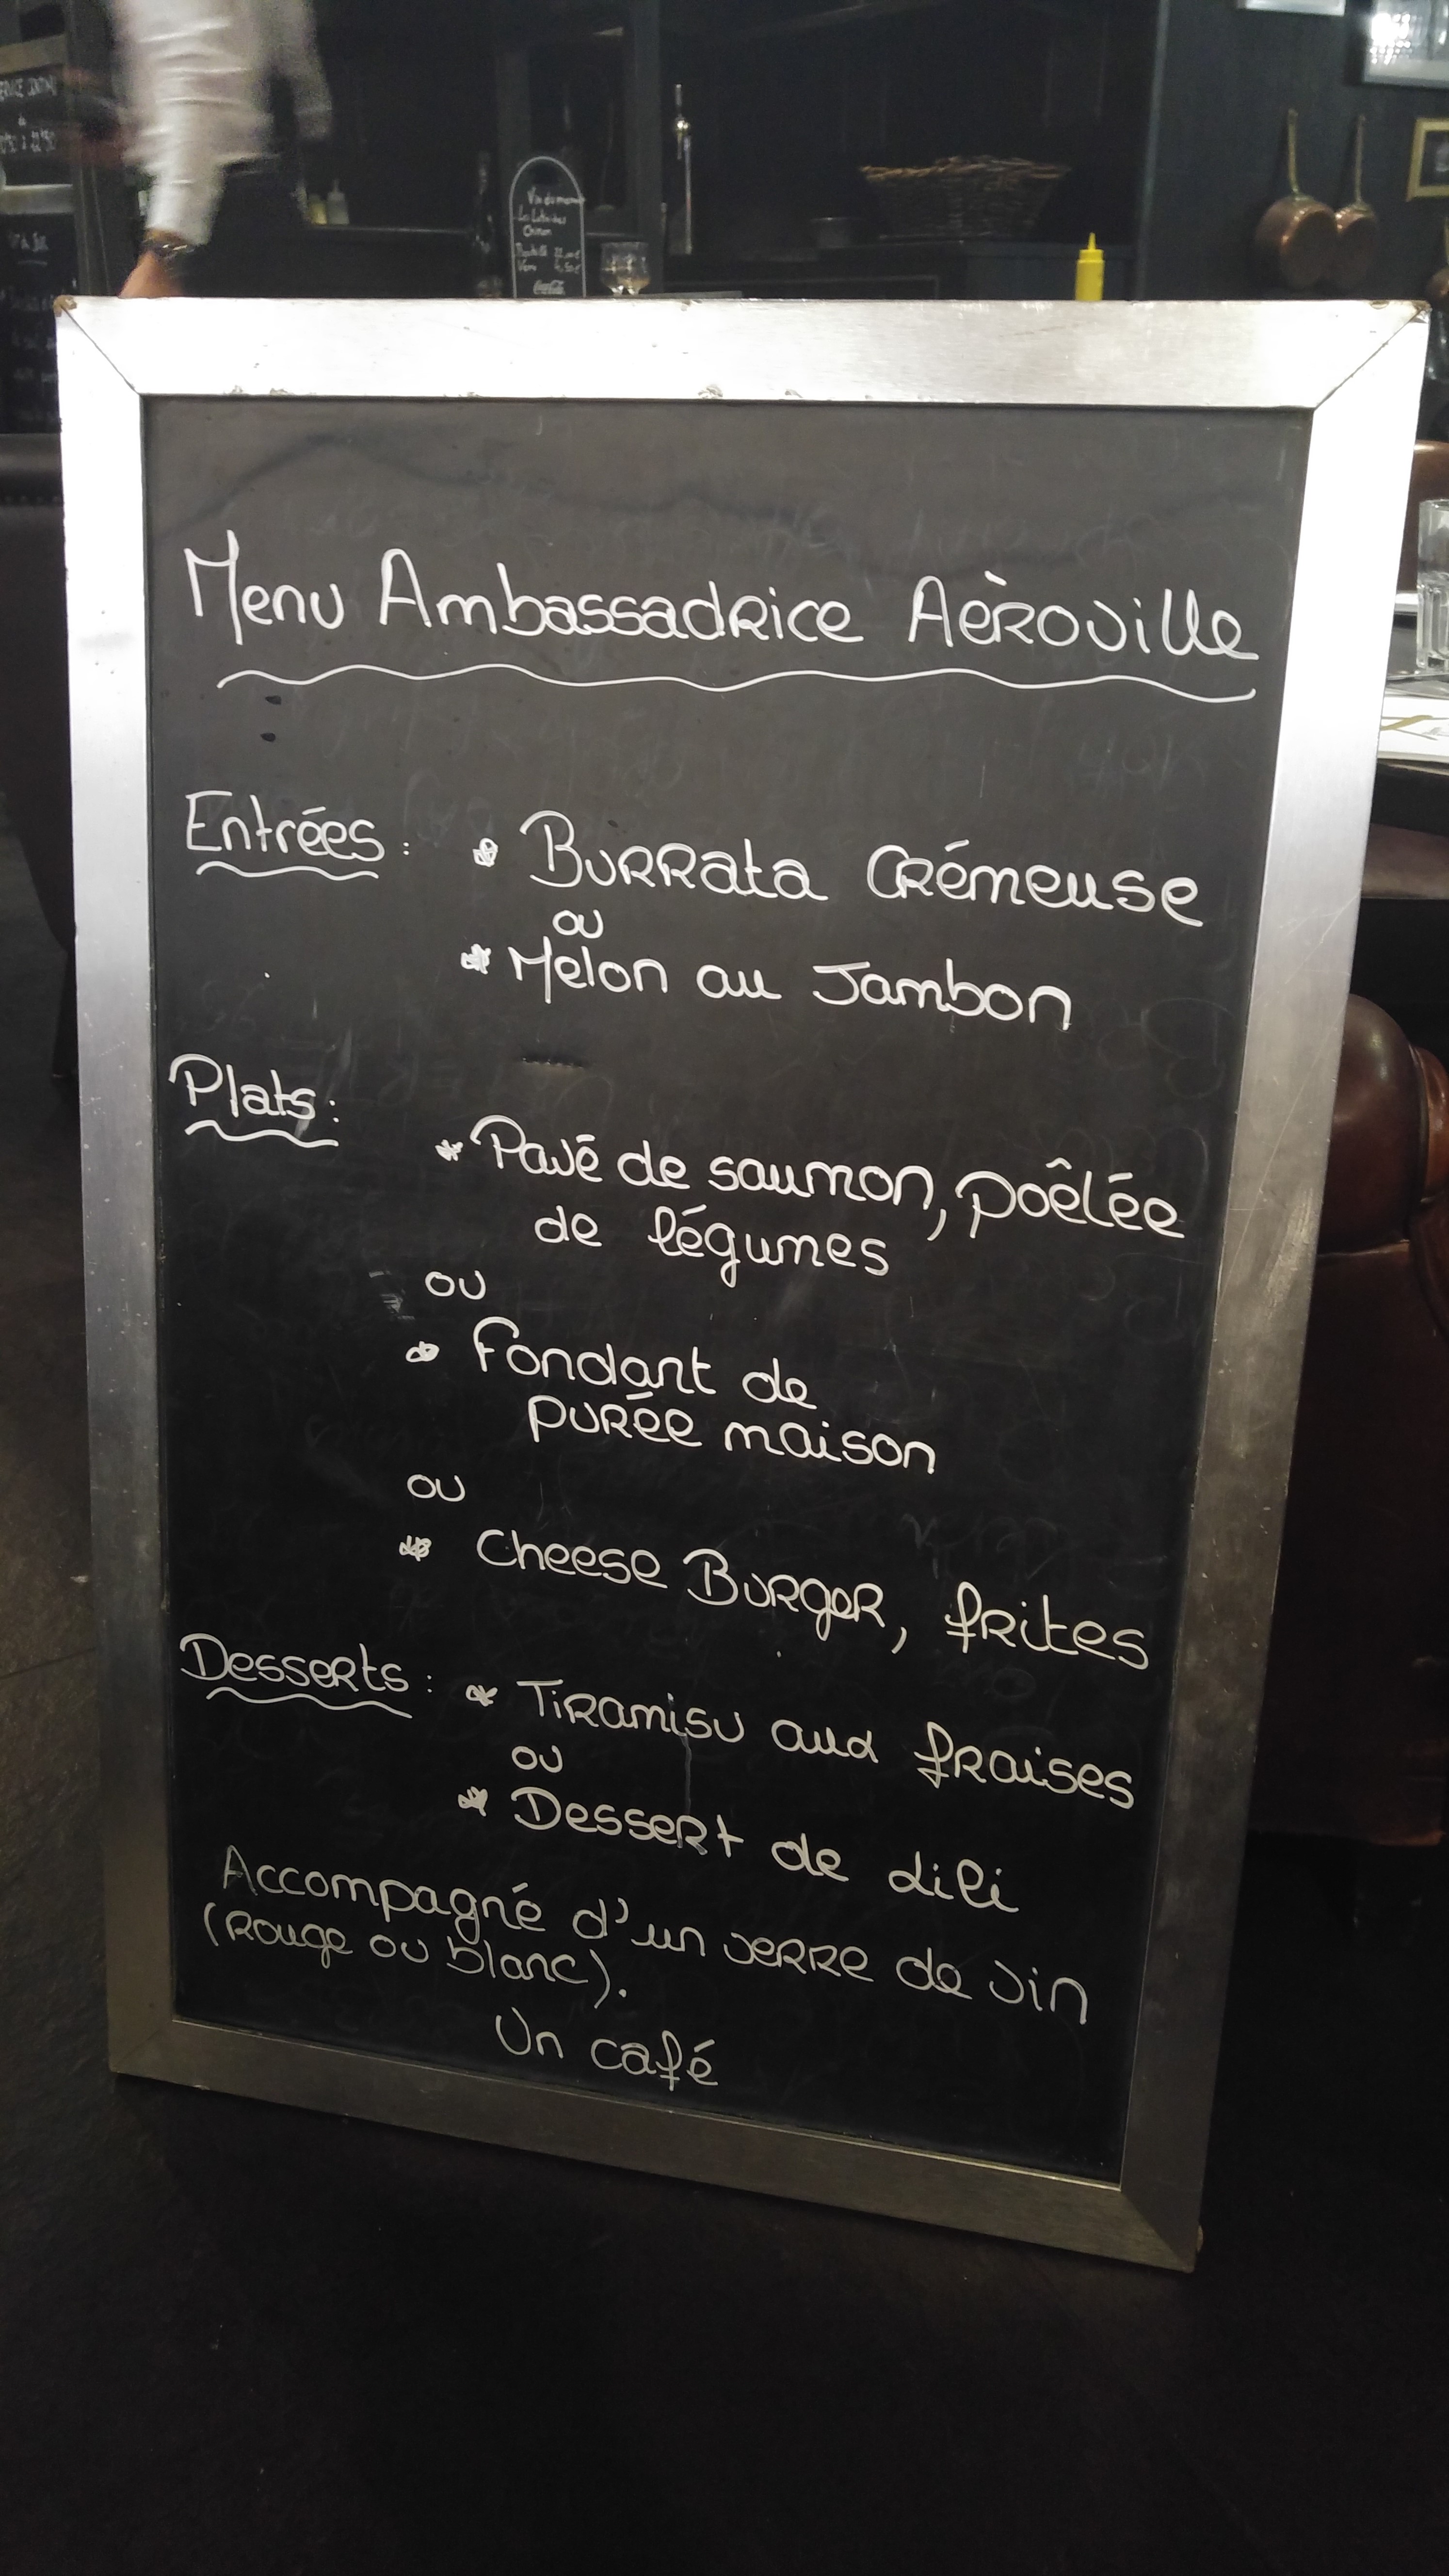 Vin du mois
Chinon
Coca-Cola
Menu Ambassadrice Aèroville
Entrées : * Burrata Crémeuse
ou
* Melon au Jambon
Plats :
* Pavé de saumon, poêlée
de légumes
ou
* Fondant de
purée maison
ou
* Cheese Burger, frites
Desserts : * Tiramisu aux fraises
ou
* Dessert de Lili
Accompagné d'un verre de vin
(Rouge ou blanc).
Un café